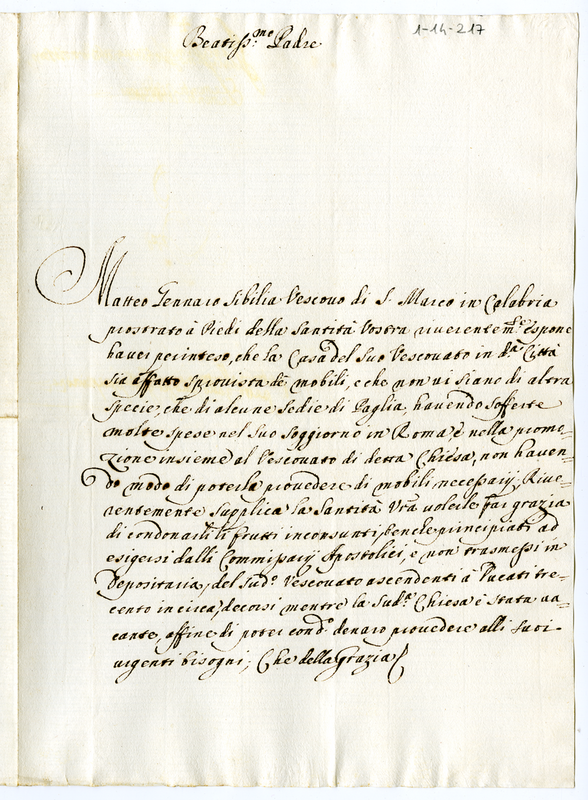 1-14-217
Beatiss:mo Padre
Matteo Gennaro Sibilia Vescovo di S. Marco in Calabria
prostrato à Piedi della Santità Vostra riverentem.te espone
haver per inteso, che la Casa del suo Vescovato in d.a Città
sia affatto sprovista dè mobili, e che non vi siano di altra
specie, che di alcune sedie di Paglia, havendo sofferte
molte spese nel suo soggiorno in Roma, è nella promo-
zione insieme al Vescovato di detta Chiesa, non haven-
do modo di poterla provedere di mobili necessarij; Rive-
rentemente supplica la Santità Vra volerle far grazia
di condonarli li frutti inconsunti, benche principiati ad
esigersi dalli Commissarij Apostolici, e non trasmessi in
Depositaria, del sud.o Vescovato ascendenti à Ducati tre-
cento in circa, decorsi mentre la sud.a Chiesa è stata va-
cante, affine di poter con d.o denaro provedere alli suoi
urgenti bisogni; Che della Grazia